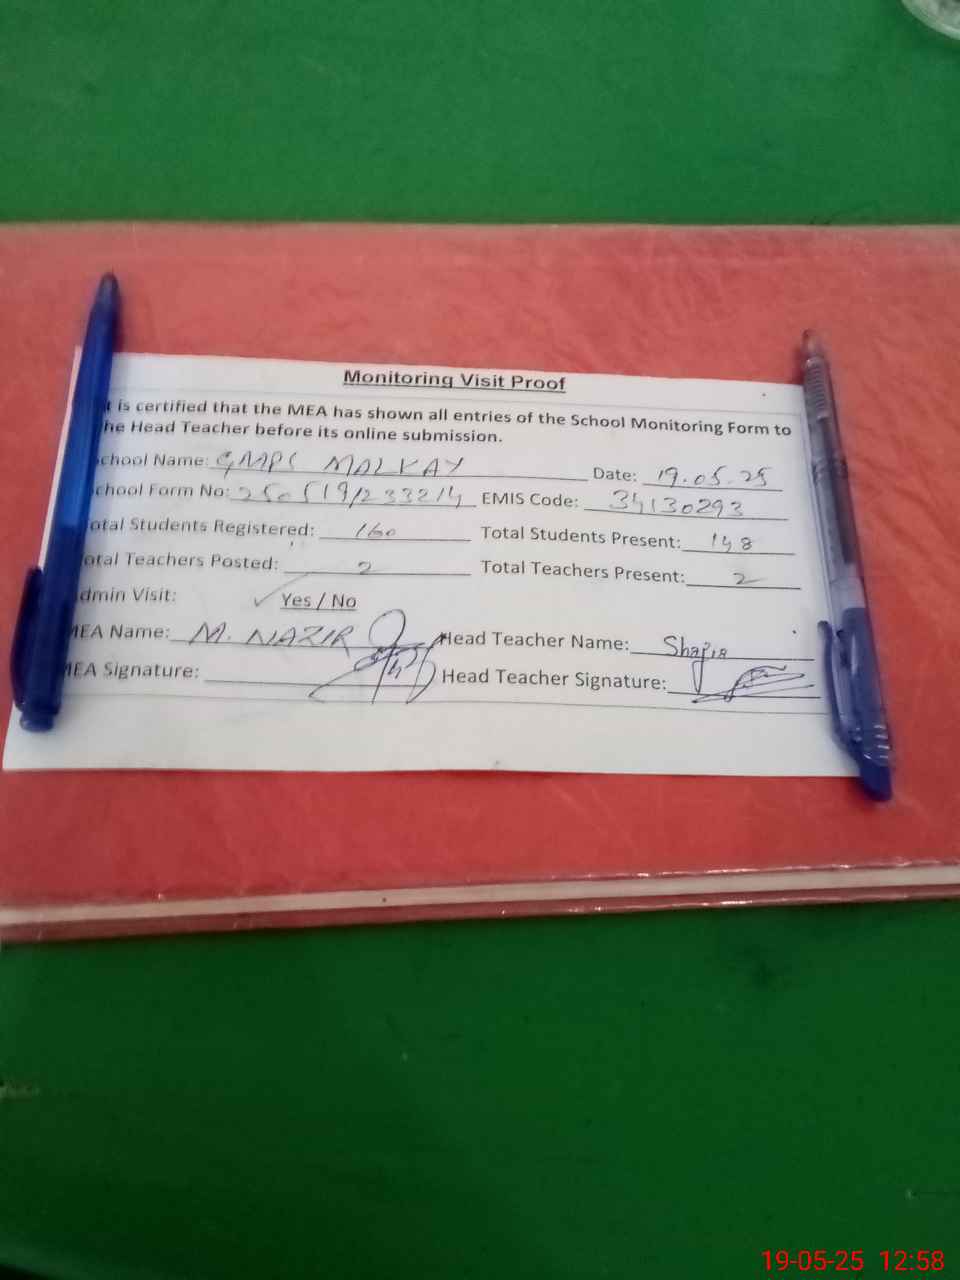 Monitoring Visit Proof
t is certified that the MEA has shown all entries of the School Monitoring Form to
he Head Teacher before its online submission.
chool Name: GMPS MALKAY Date: 19.05.25
chool Form No: EMIS Code: 34130293
otal Students Registered: 160 Total Students Present: 148
otal Teachers Posted: 2 Total Teachers Present: 2
dmin Visit: ✓ Yes / No
MEA Name: M. NAZIR Head Teacher Name: Shazia
MEA Signature: Head Teacher Signature:
19-05-25 12:58